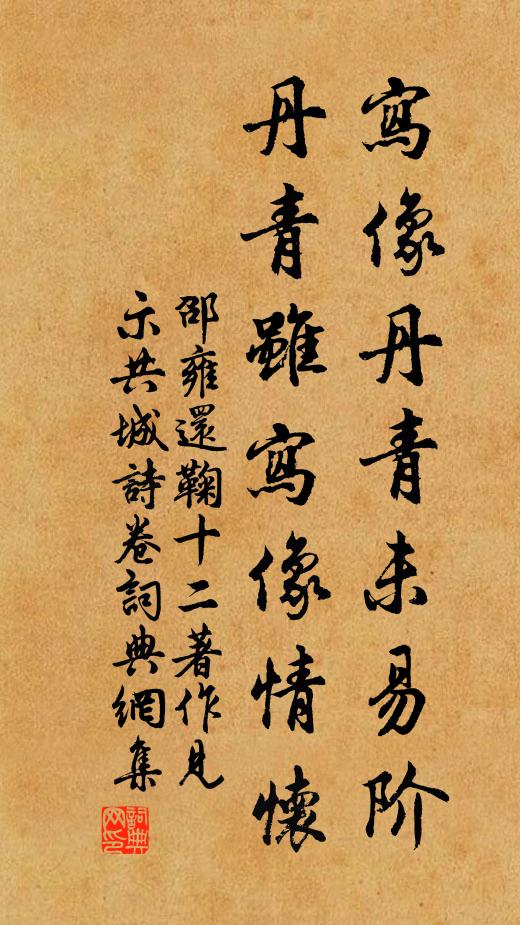 寫像丹青未易阶
丹青雖寫像情懷
邵雍還鞠十二著作見
示共城詩卷詞典網集
詞典网印